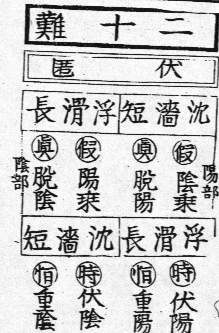 二十難
伏匿
陽部
沈濇短
假陰乗
眞脫陽
浮滑長
時伏陽
恒重陽
浮滑長
假陽乗
眞脫陰
沈濇短
時伏陰
恒重陰
陰部